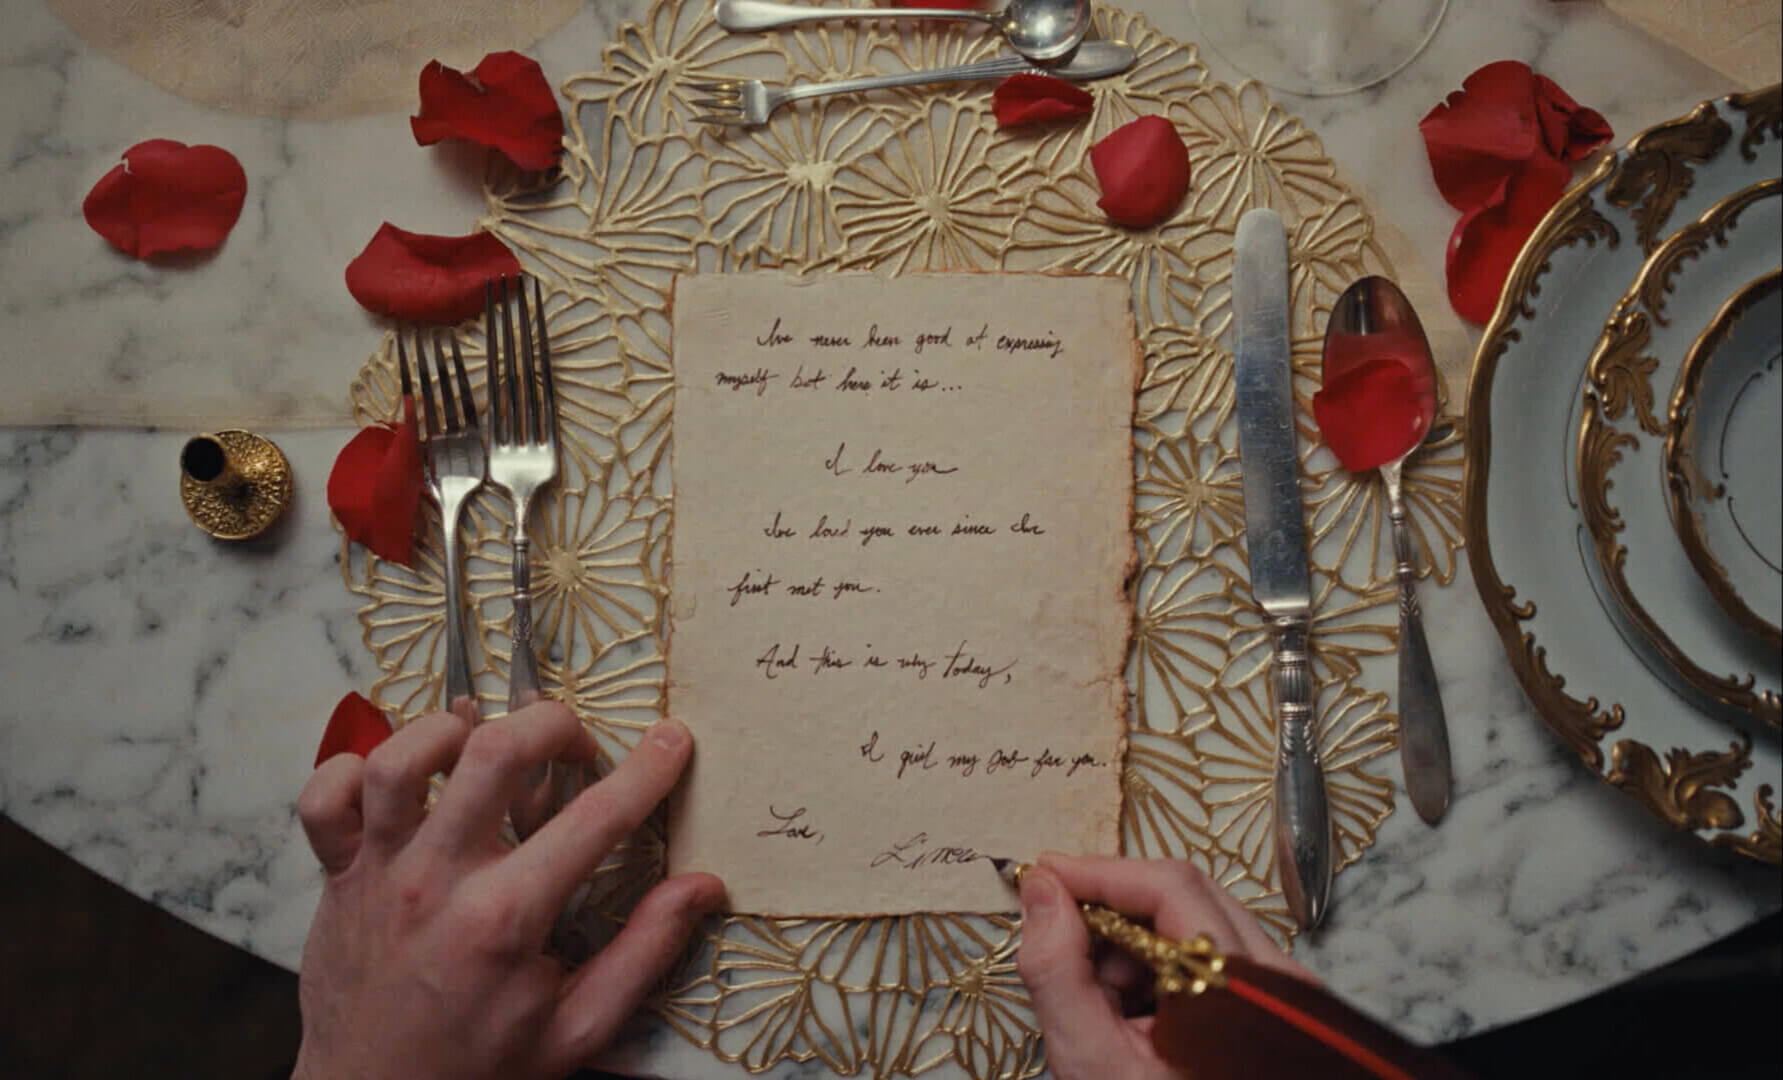 I've never been good at expressing
myself but here it is...
I love you
I've loved you ever since I've
first met you.
And this is why today,
I quit my job for you.
Love,